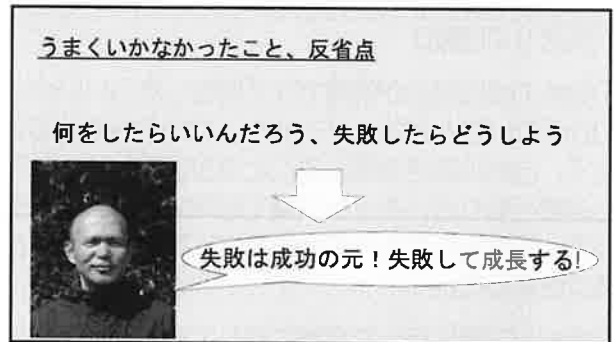 うまくいかなかったこと、反省点
何をしたらいいんだろう、失敗したらどうしよう
失敗は成功の元！失敗して成長する!